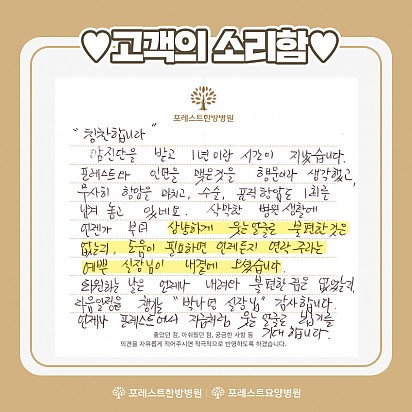 ♥고객의 소리함♥
포레스트한방병원
"칭찬합니다"
암진단을 받고 1년이란 시간이 지났습니다.
포레스트와 인연을 맺은것을 행운이라 생각했고,
무사히 항암을 마치고, 수술, 표적항암도 1회를
남겨 놓고 있네요. 삭막한 병원생활에
언젠가 부터 상냥하게 웃는얼굴로 불편한것은
없는지, 도움이 필요하면 언제든지 연락주라는
예쁜 실장님이 내곁에 오셨습니다.
퇴원하는 날은 언제나 내려와 불편한 곳은 없었는지
다음일정을 챙기는 "박나영 실장님" 감사합니다.
언제나 포레스트에서 지금처럼 웃는 얼굴로 뵙기를
기대 합니다.
좋았던 점, 아쉬웠던 점, 궁금한 사항 등
의견을 자유롭게 적어주시면 적극적으로 반영하도록 하겠습니다.
포레스트한방병원 | 포레스트요양병원